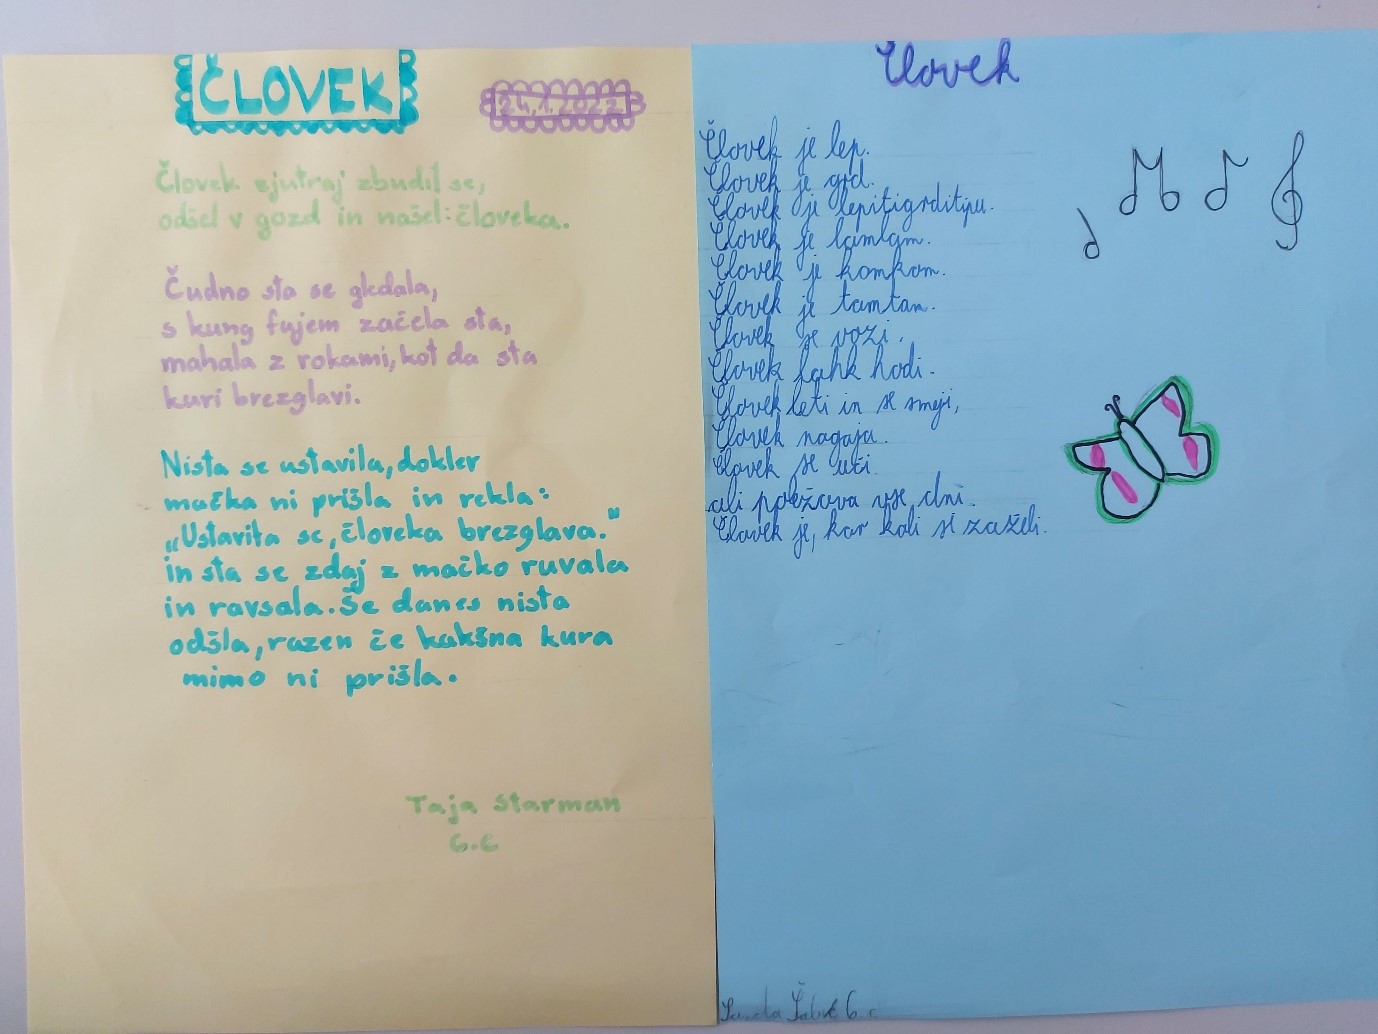 ČLOVEK
24.1.2022
Človek zjutraj zbudil se,
odšel v gozd in našel: človeka.
Čudno sta se gledala,
s kung fujem začela sta,
mahala z rokami, kot da sta
kuri brezglavi.
Nista se ustavila, dokler
mačka ni prišla in rekla:
„Ustavita se, človeka brezglava."
in sta se zdaj z mačko ruvala
in ravsala. Še danes nista
odšla, razen če kakšna kura
mimo ni prišla.
Taja Starman
6.c
Človek
Človek je lep.
Človek je grd.
Človek je lepitigrditipu.
Človek je lamlam.
Človek je komkom.
Človek je tamtam.
Človek se vozi.
Človek lahk hodi.
Človek leti in se smeji,
Človek nagaja.
Človek se uči.
ali poležava vse dni.
Človek je, kar koli si zaželi.
6. c